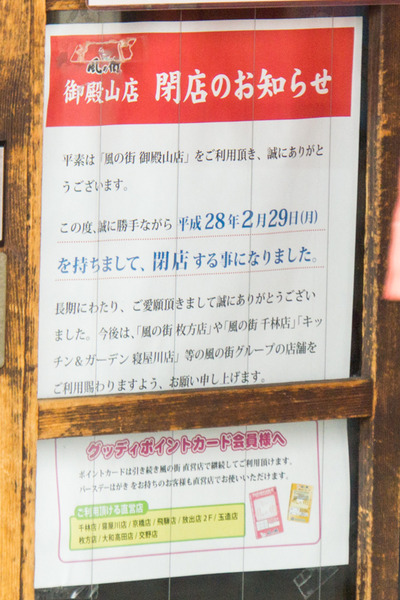 風の街
御殿山店 閉店のお知らせ
平素は「風の街 御殿山店」をご利用頂き、誠にありがと
うございます。
この度、誠に勝手ながら 平成28年2月29日(月)
を持ちまして、閉店する事になりました。
長期にわたり、ご愛願頂きまして誠にありがとうござい
ました。今後は、「風の街 枚方店」や「風の街 千林店」「キッ
チン&ガーデン 寝屋川店」等の風の街グループの店舗を
ご利用賜わりますよう、お願い申し上げます。
グッディポイントカード会員様へ
ポイントカードは引き続き風の街 直営店で継続してご利用頂けます。
バースデーはがき をお持ちのお客様も直営店でお使いいただけます。
ご利用頂ける直営店
千林店/寝屋川店/京橋店/飛騨店/放出店2F/玉造店
枚方店/大和高田店/交野店